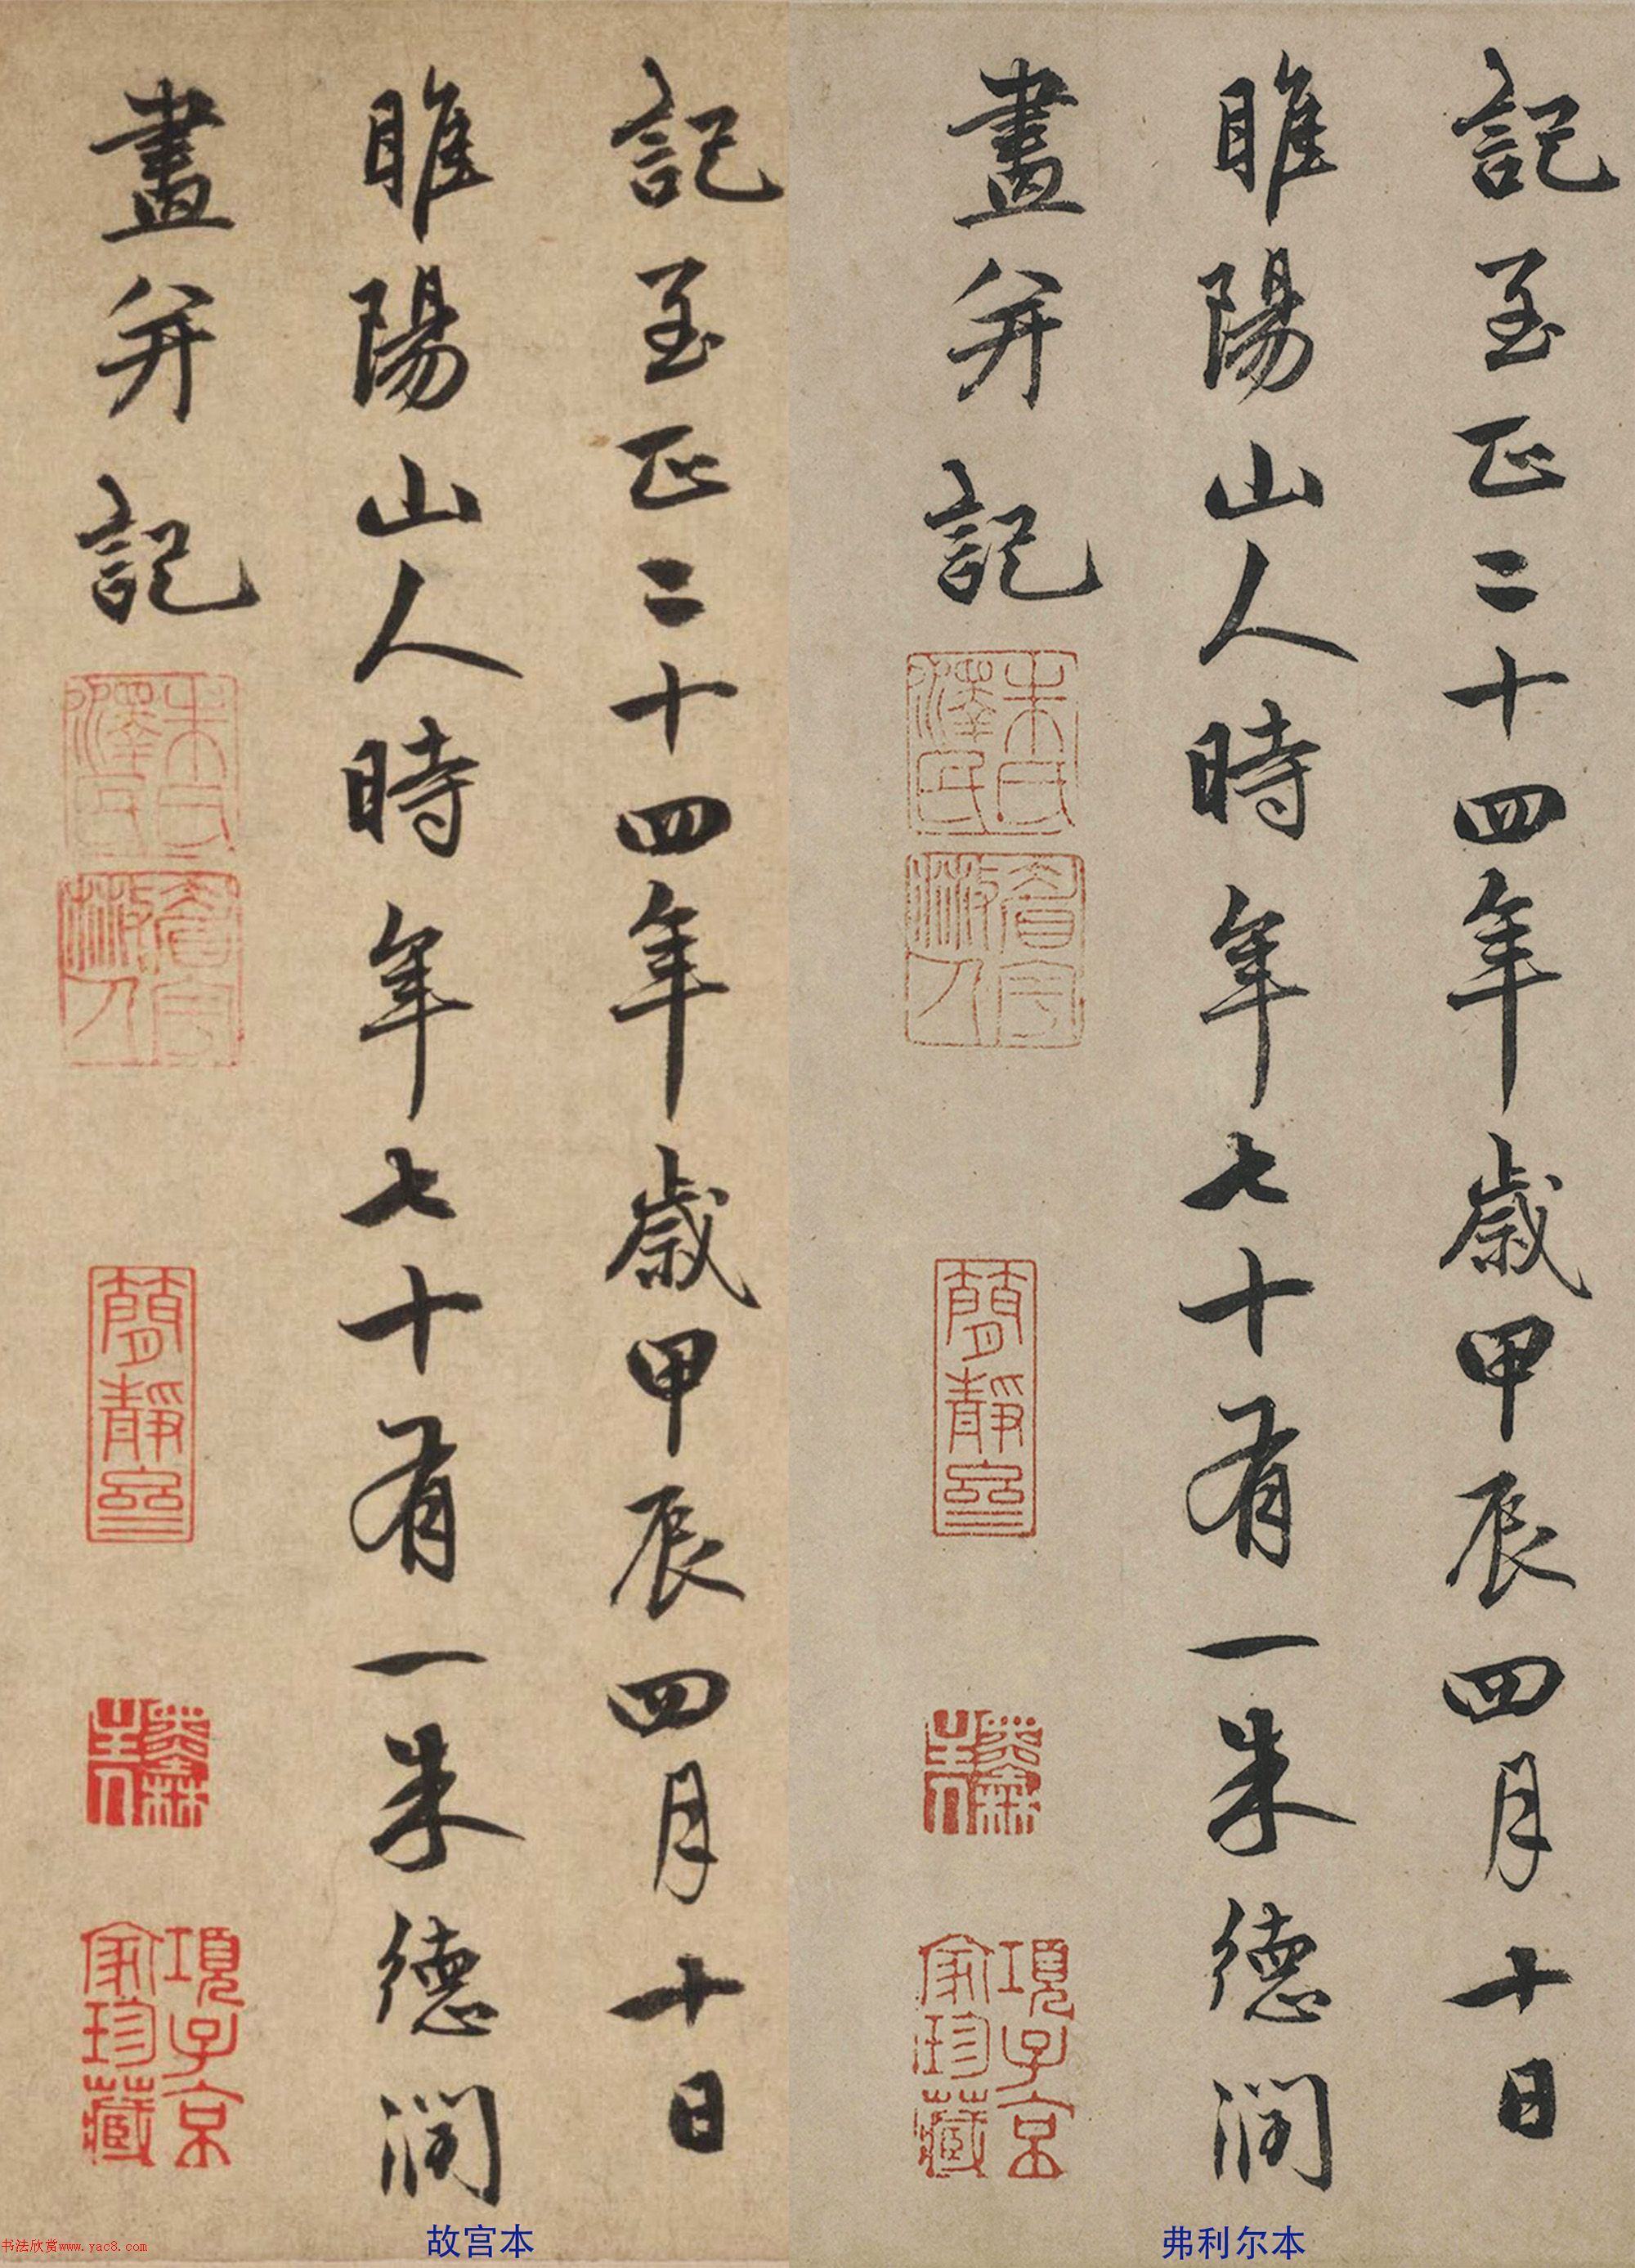 記至正二十四年歲甲辰四月十日
睢陽山人時年七十有一朱德潤
畫并記
朱氏澤民
項子京家珍藏
故宫本
記至正二十四年歲甲辰四月十日
睢陽山人時年七十有一朱德潤
畫并記
朱氏澤民
項子京家珍藏
弗利尔本
书法欣赏www.yac8.com